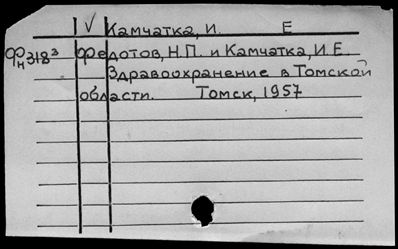 V Камчатка, И. Е
Фн 318³ Федотов, Н.П. и Камчатка, И.Е.
Здравоохранение в Томской
области. Томск, 1957